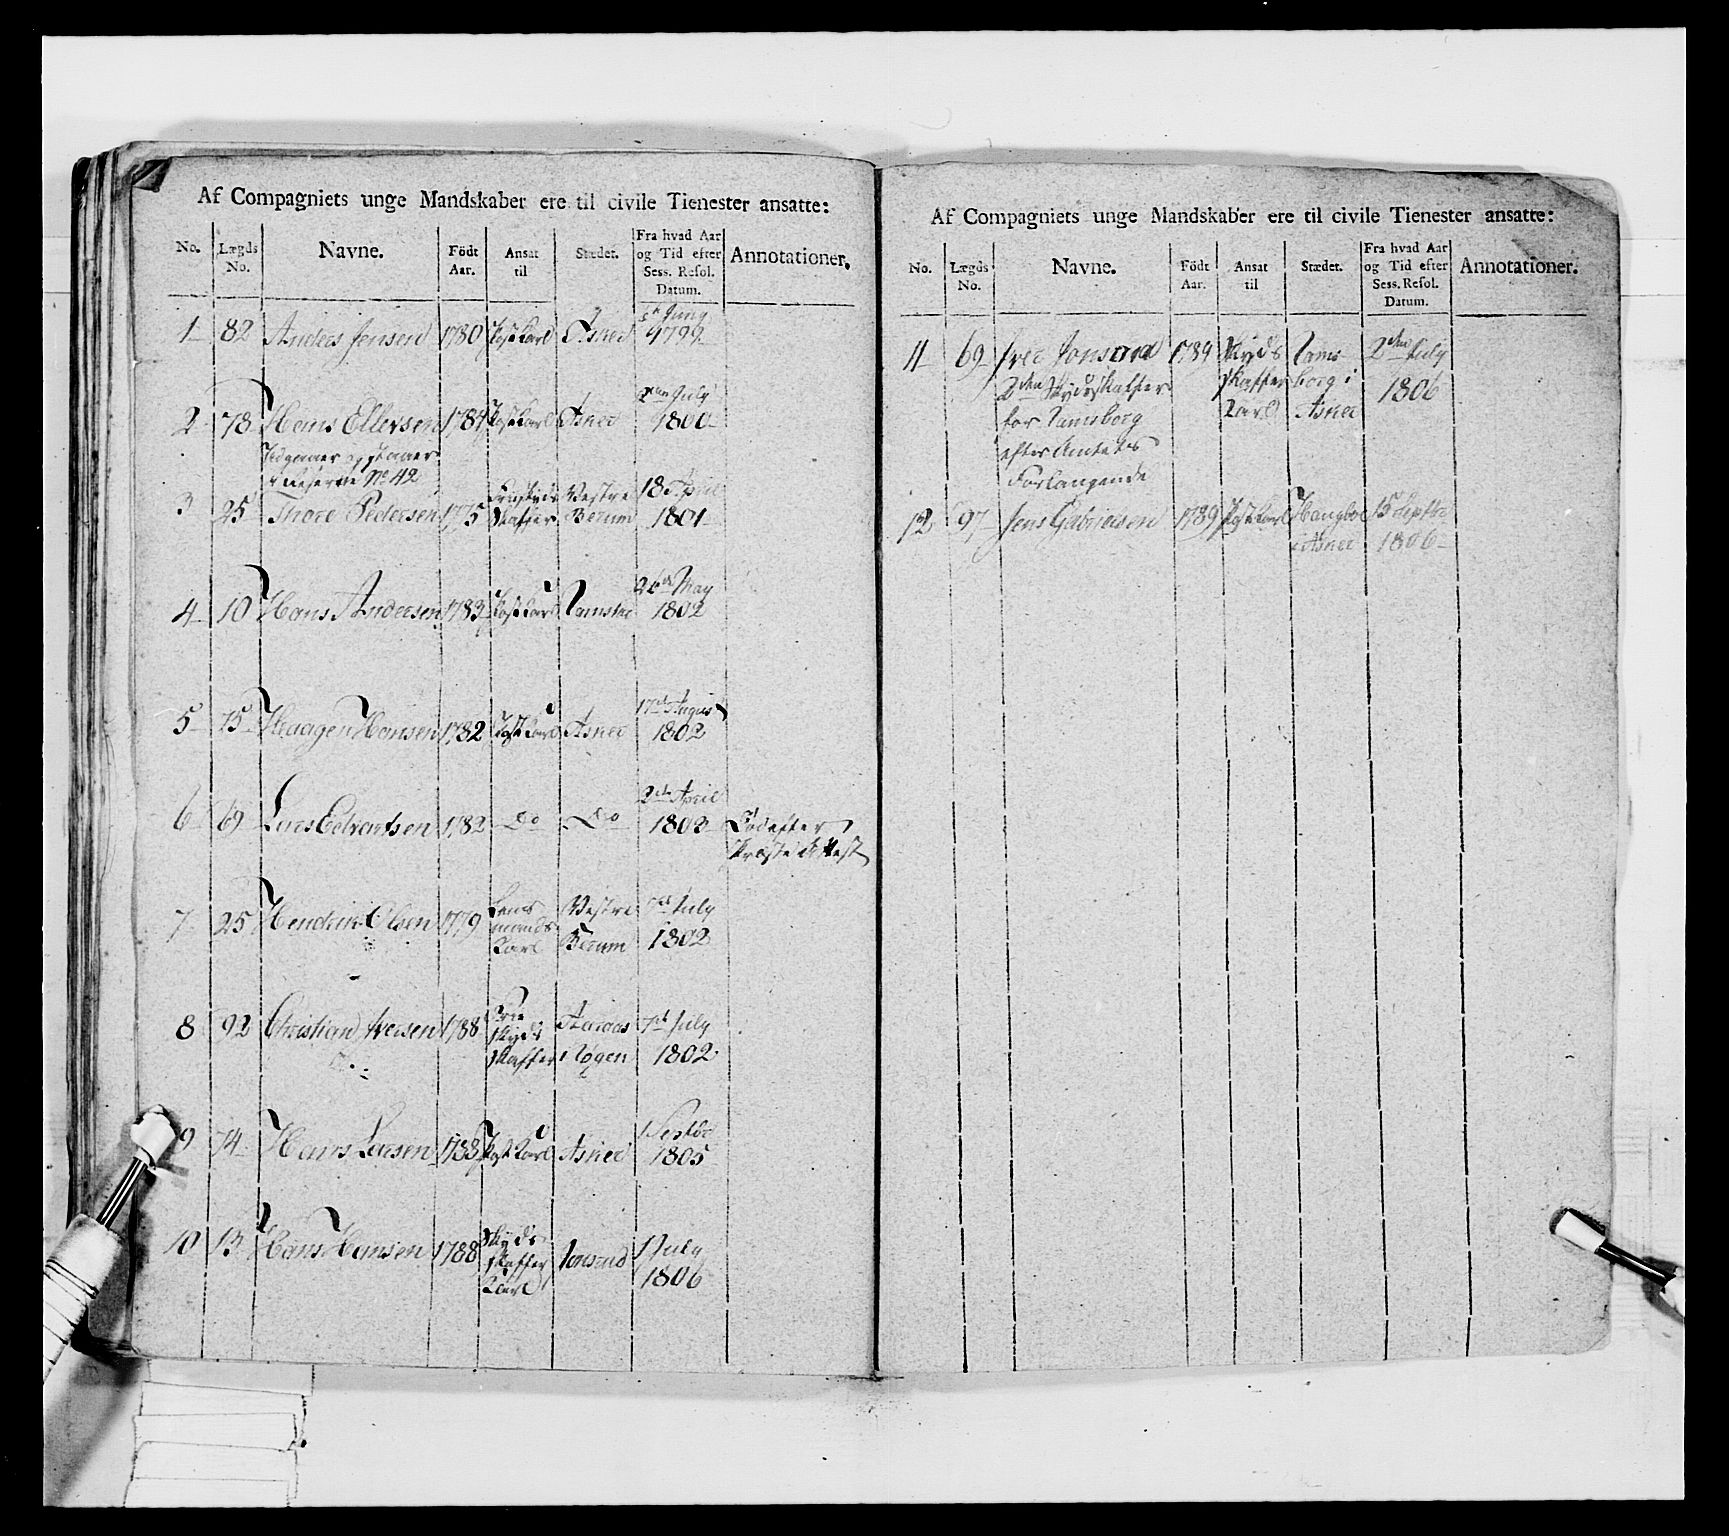 Af Compagniets unge Mandskaber ere til civile Tienester ansatte:
No. Lægds No. Navne. Födt Aar. Ansat til Stædet. Fra hvad Aar og Tid efter Sess. Resol. Datum. Annotationer.
1 82 Anders Jensen 1780 Postkarl Asker Juny 1799
2 78 Hans Ellevsen 1784 Postkarl Asker 2den July 1800
No 42
3 25 Thore Pedersen 1775 Skaffer Vestre Berum 18 April 1801
4 10 Hans Andersen 1783 Postkarl 26de May 1802
5 75 Haagen Hansen 1782 Postkarl Asker 17de August 1802
6 69 Lars 1782 Do Do 2de April 1802 Død efter
Præste Attest
7 25 Hendrik Olsen 1779 Lens
mands
Karl Vestre
Berum 7de July
1802
8 92 Christian Iversen 1788 Frie
Skyds
Skaffer Røgen 7de July
1802
9 74 Hans Larsen 1788 Postkarl Asker 1 Septbr
1805
10 13 Hans Hansen 1788 Skyds
Skaffer
Karl 1 July
1806
Af Compagniets unge Mandskaber ere til civile Tienester ansatte:
No. Lægds No. Navne. Födt Aar. Ansat til Stædet. Fra hvad Aar og Tid efter Sess. Resol. Datum. Annotationer.
11 69 Iver 1784 Skyds 2den July
2den Skydsskaffer Skaffer borg i 1806
for Karl Asker
efter Amtets
Forlangende
12 97 Jens Gabrielsen 1789 Postkarl 15 Septbr
i Asker 1806